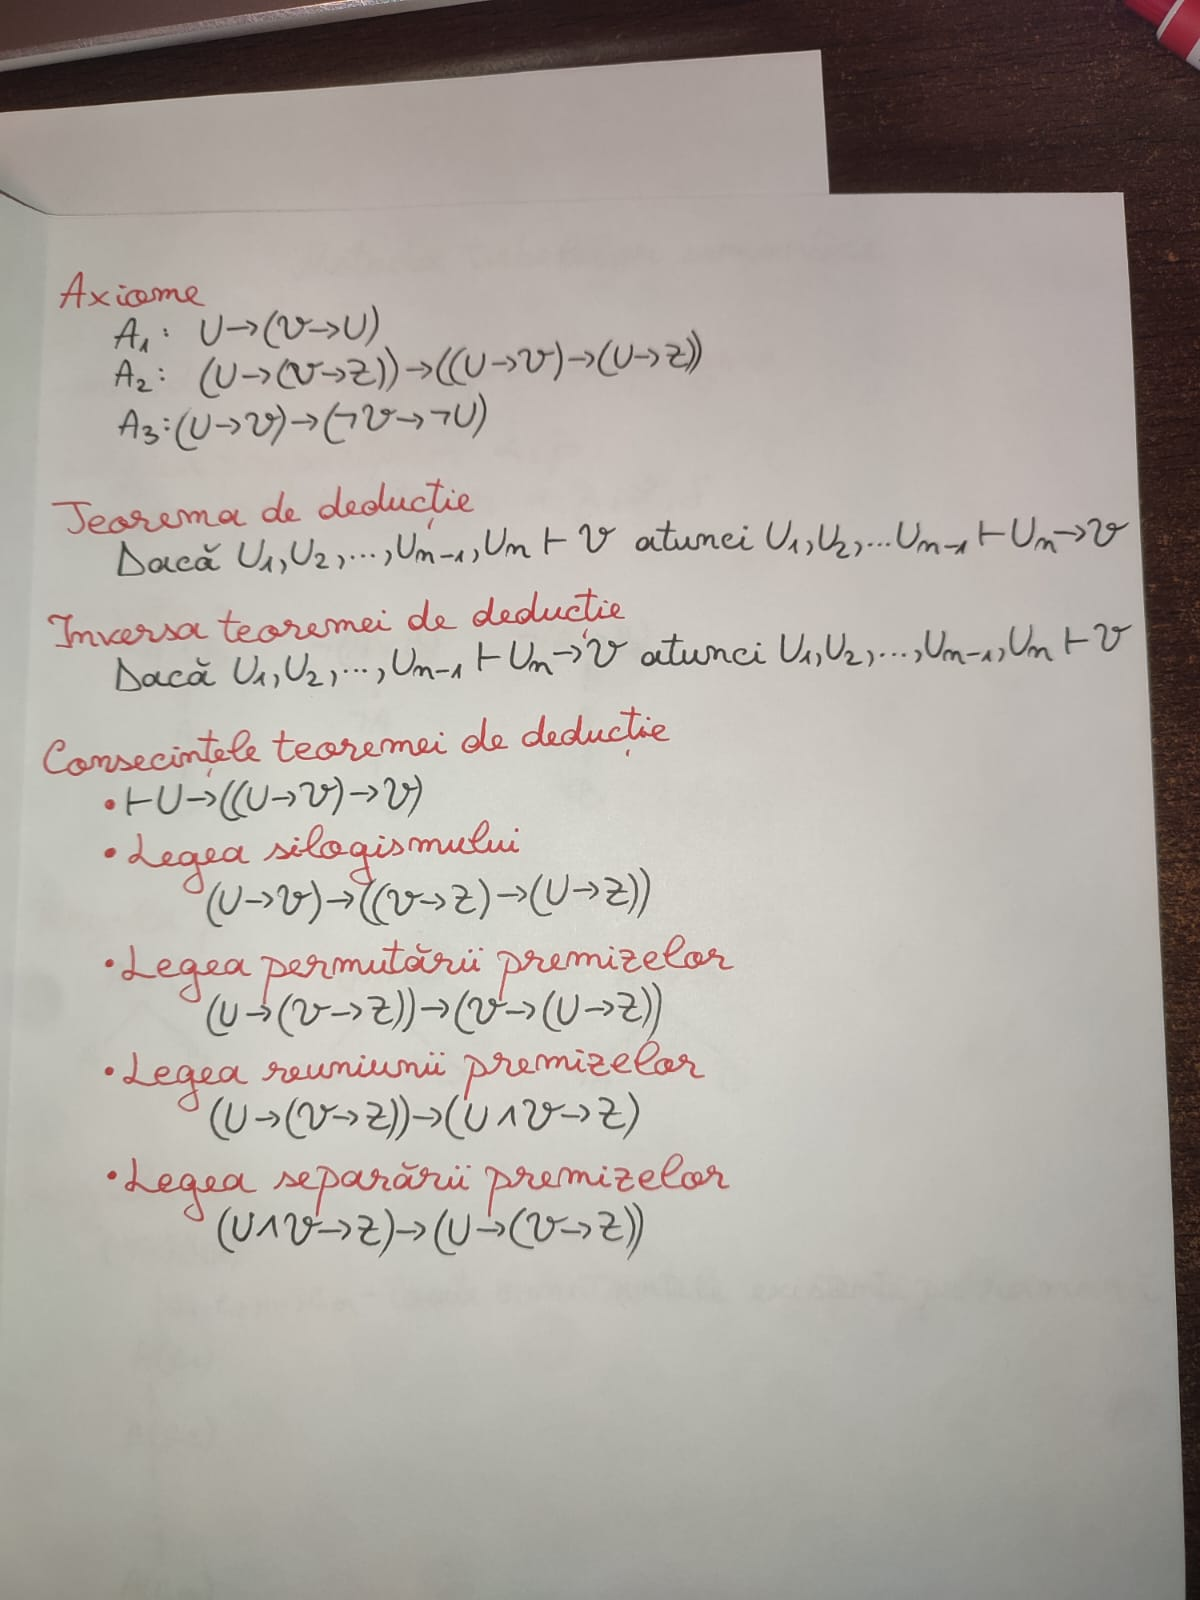 Axiome
A₁: U→(V→U)
A₂: (U→(V→Z))→((U→V)→(U→Z))
A₃:(U→V)→(¬V→¬U)
Teorema de deducție
Dacă U₁,U₂,...,Uₙ₋₁,Uₙ ⊢ V atunci U₁,U₂,...Uₙ₋₁ ⊢ Uₙ→V
Inversa teoremei de deducție
Dacă U₁,U₂,...,Uₙ₋₁ ⊢ Uₙ→V atunci U₁,U₂,...,Uₙ₋₁,Uₙ ⊢ V
Consecințele teoremei de deducție
• ⊢U→((U→V)→V)
• Legea silogismului
(U→V)→((V→Z)→(U→Z))
• Legea permutării premizelor
(U→(V→Z))→(V→(U→Z))
• Legea reuniunii premizelor
(U→(V→Z))→(U∧V→Z)
• Legea separării premizelor
(U∧V→Z)→(U→(V→Z))